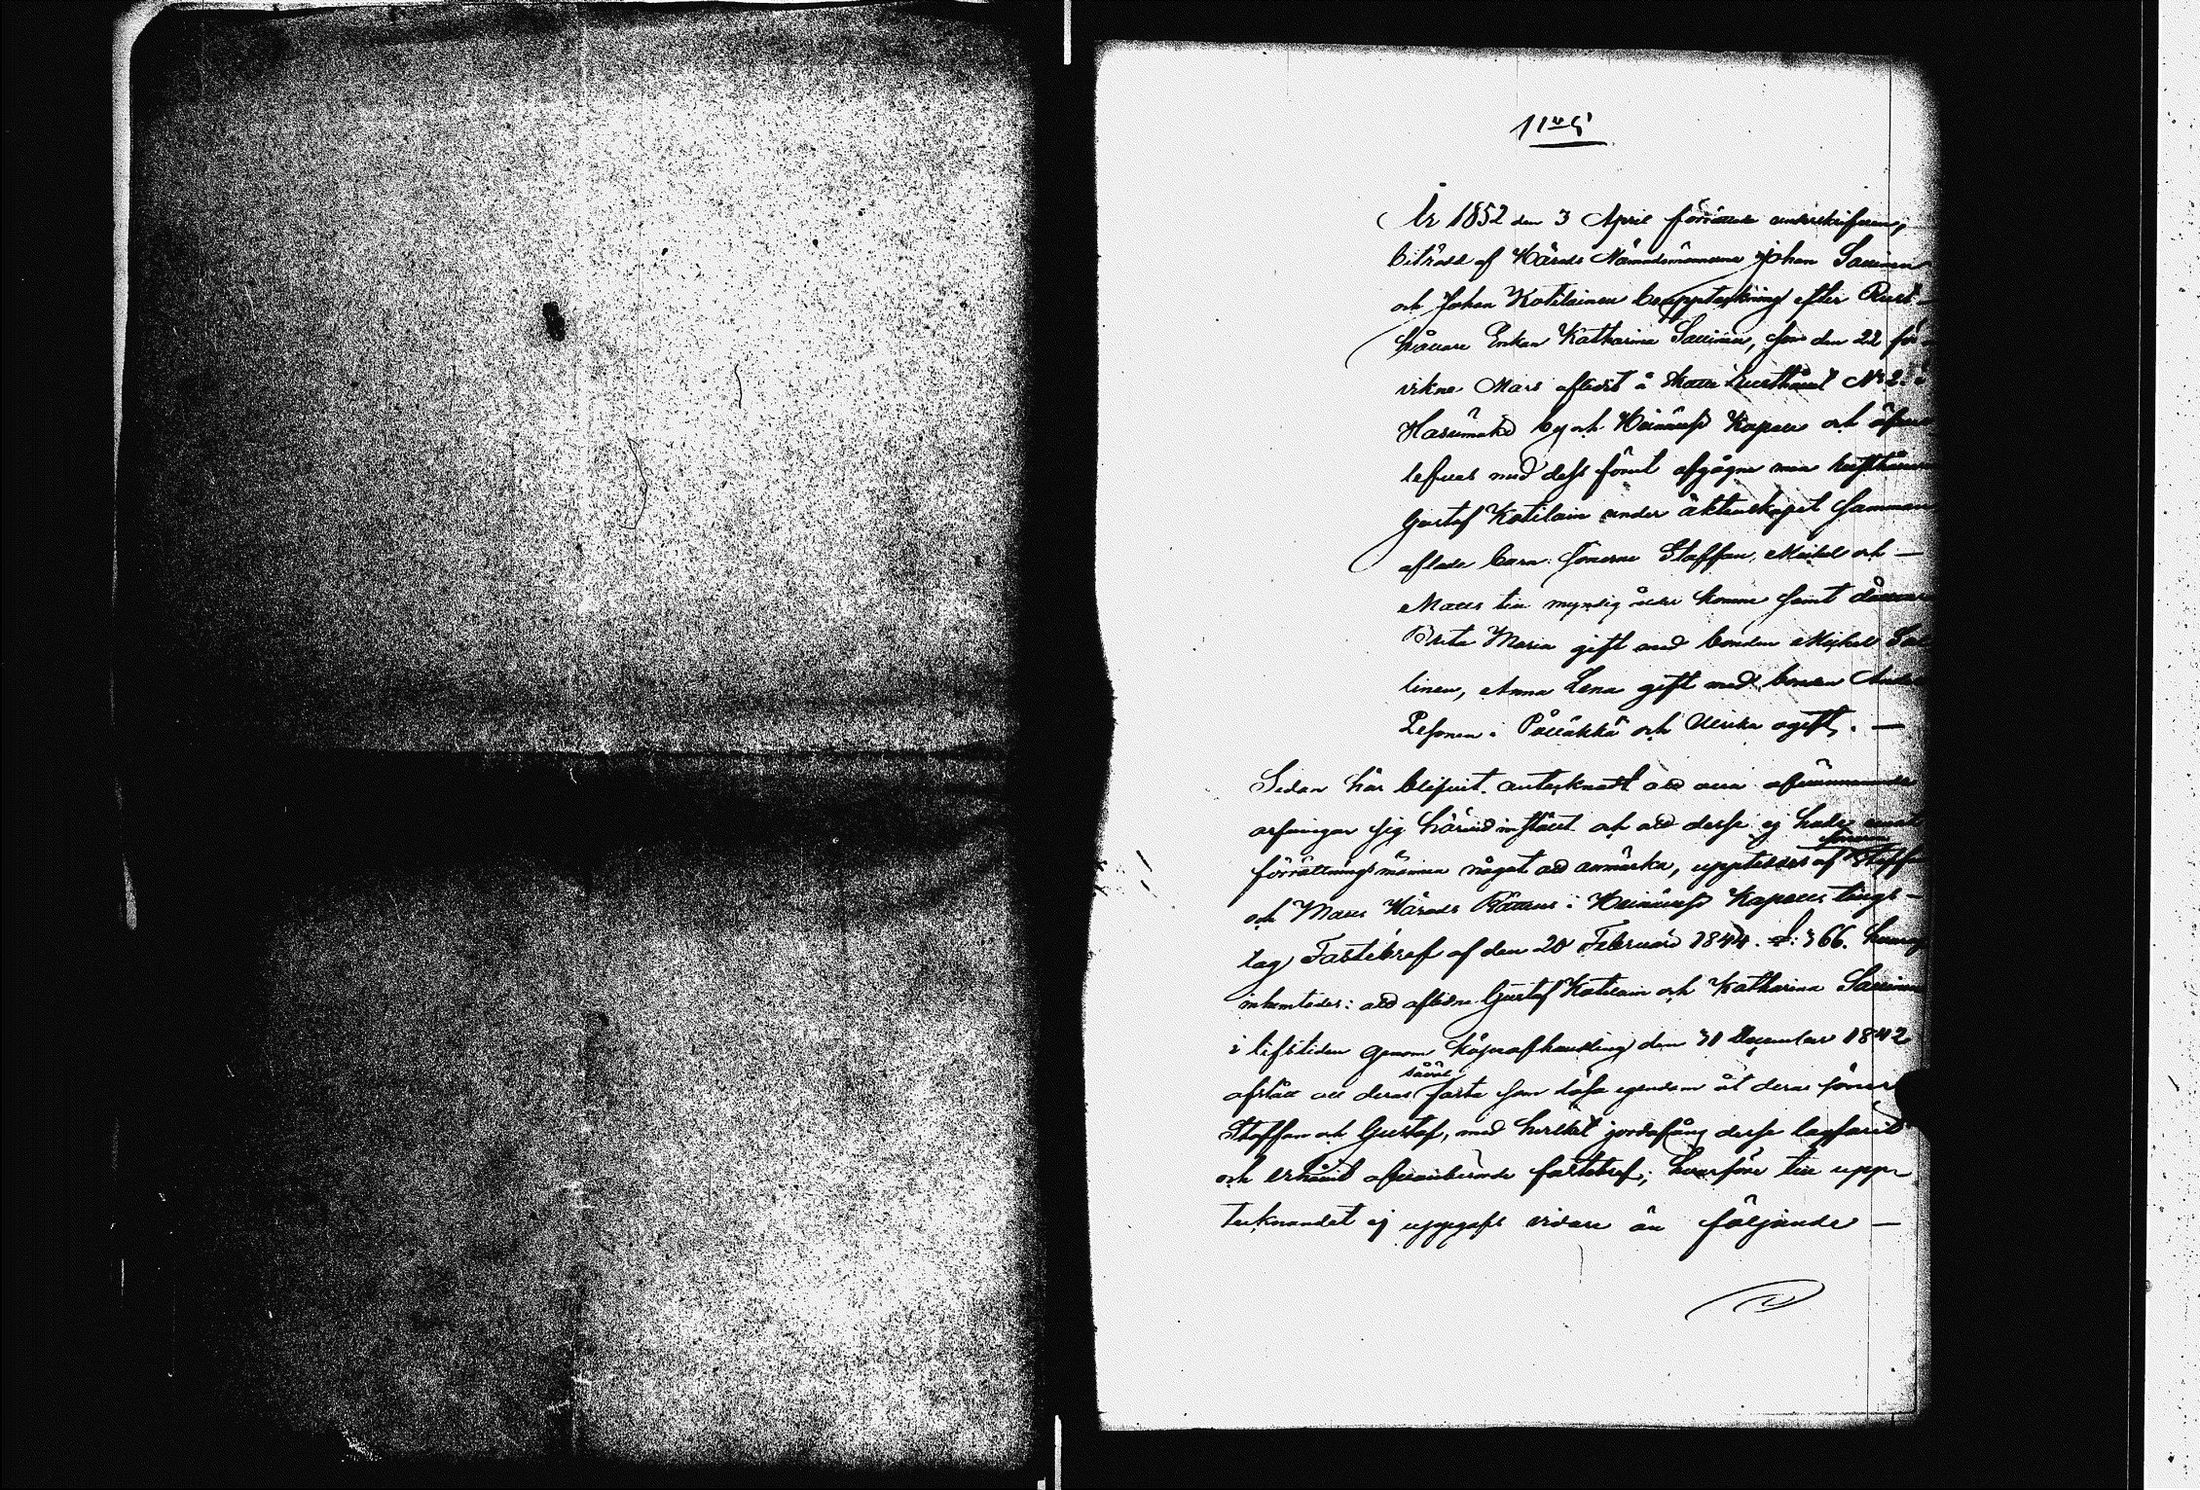 År 1852 den 3 April förrättade undertecknad,
biträdd af Härads Nämndemännerne Johan Sauinen
och Johan Kotilainen bouppteckning efter Rust-
hållare Enkan Katharina Sauinen, som den 22 för-
vikne Mars aflidit å Skatte Rusthållet № 2 i
Hasumäki by och Heinävesi Kapell och öfver-
lefves med dess förut afgågne man rusthållaren
Gustaf Kotilain under äktenskapet samman-
aflade barn: Sönerne Staffan, Mickel och —
Matts till myndig ålder komne samt döttrarne
Brita Maria gift med bonden Mickel
linen, Anna Lena gift med bonden
Pesonen i och Ulrika ogift. —
Sedan här blifvit antecknadt att alla ofvannämnde
arfvingar sig härvid inställt och att desse ej hade emot
förrättningsmännen något att anmärka, uppteddes af Sönerne Staffan
och Matts Härads Rättens i Heinävesi Kapells tings-
lag Fastebref af den 20 Februari 1844. §: 366. hvaraf
inhemtades: att aflidne Gustaf Kotilain och Katharina Sauinen
i lifstiden genom köpeafhandling den 31 December 1842
afstått all deras såväl fasta som lösa egendom åt deras söner
Staffan och Gustaf, med hvilket jordafång desse lagfarit
och erhållit ofvanberörde fastebref; hvarföre till upp-
tecknandet ej uppgafs vidare än följande —